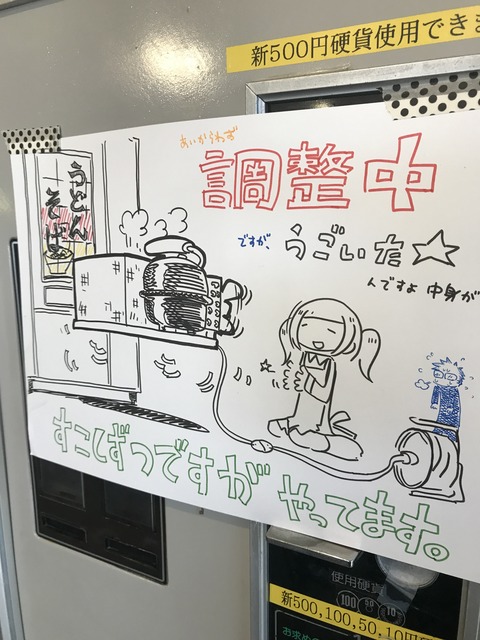 新500円硬貨使用できま
あいかわらず
調整中
ですが、うごいた☆
んですよ 中身が
うどん
そば
すこしずつですが やってます。
使用硬貨
100 50 10
新500,100,50,10円
お求め